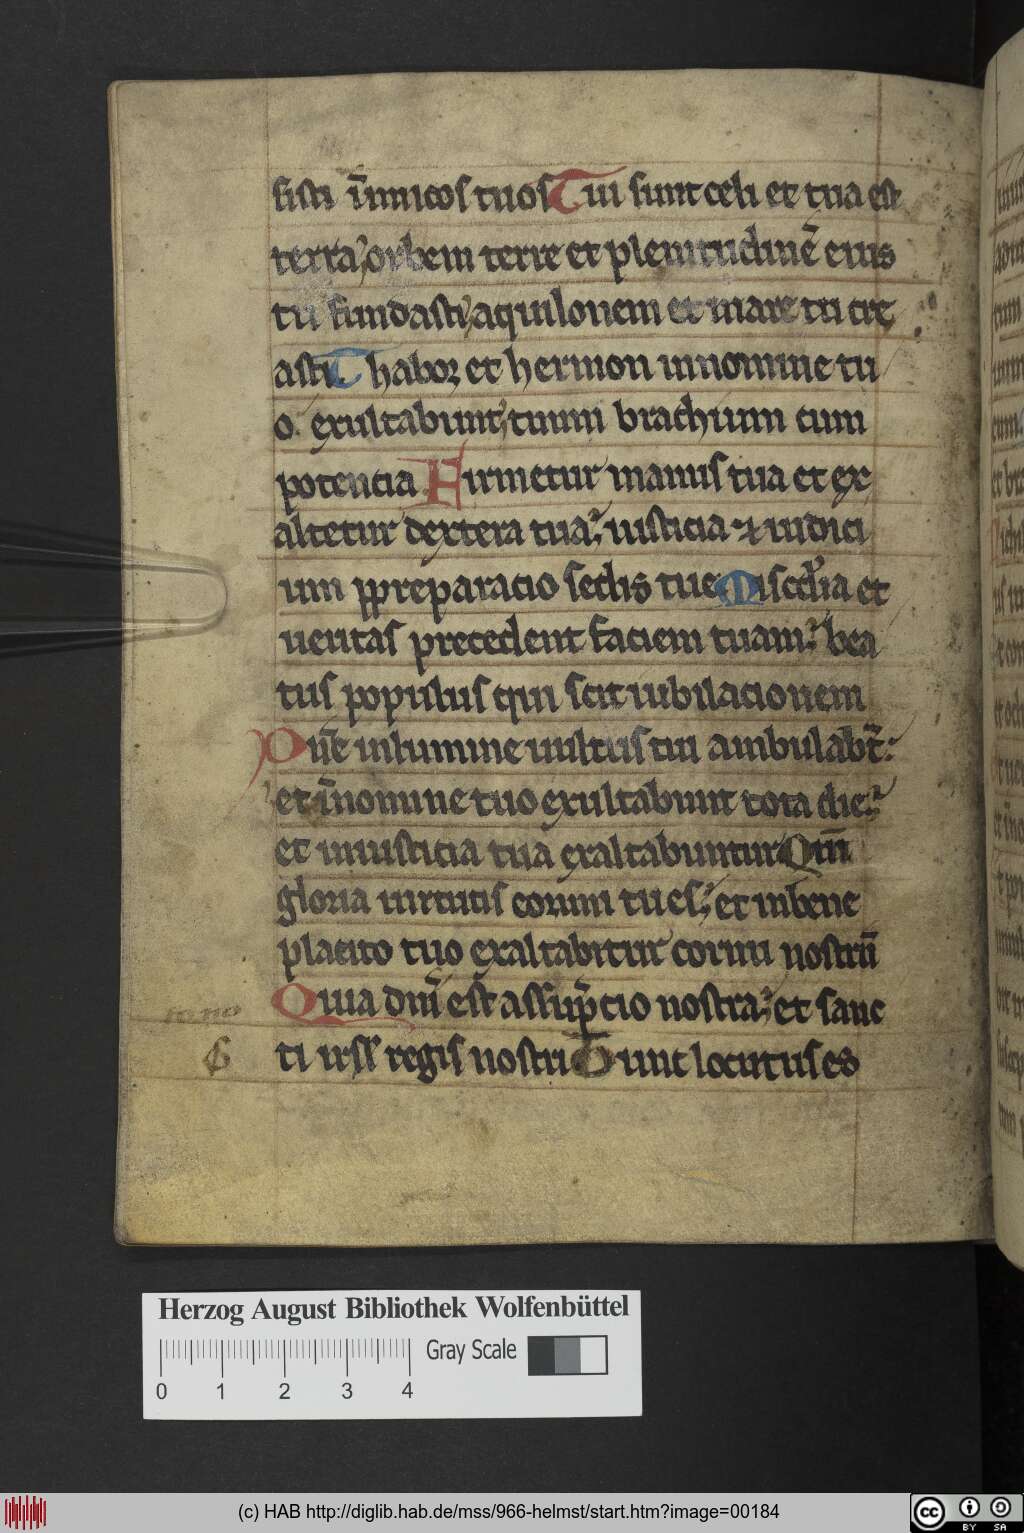 sisti īimicos tuos Tui sunt celi et tua est
terra, orbem terre et plenitudinē eius
tu fundasti, aquilonem et mare tu cre
asti. Thabor et hermon innomine tu
o. exultabunt, tuum brachium cum
potencia Firmetur manus tua et ex
altetur dextera tua, iusticia et iudici
um ppreparacio sedis tue Miscd'ia et
ueritas precedent faciem tuam, bea
tus populus qui scit iubilacionem
Dn̄e inlumine uultus tui ambulabt̄:
et īnomine tuo exultabunt tota die,
et iniusticia tua exaltabuntur Qm̄
gloria uirtutis eorum tu es, et inbene
placito tuo exaltabitur cornu nostrū
Quia dn̄i est assūpcio nostra, et sanc
ti irsl' regis nostri Tunc locutus es
Herzog August Bibliothek Wolfenbüttel
Gray Scale
0 1 2 3 4
(c) HAB http://diglib.hab.de/mss/966-helmst/start.htm?image=00184
cc BY SA